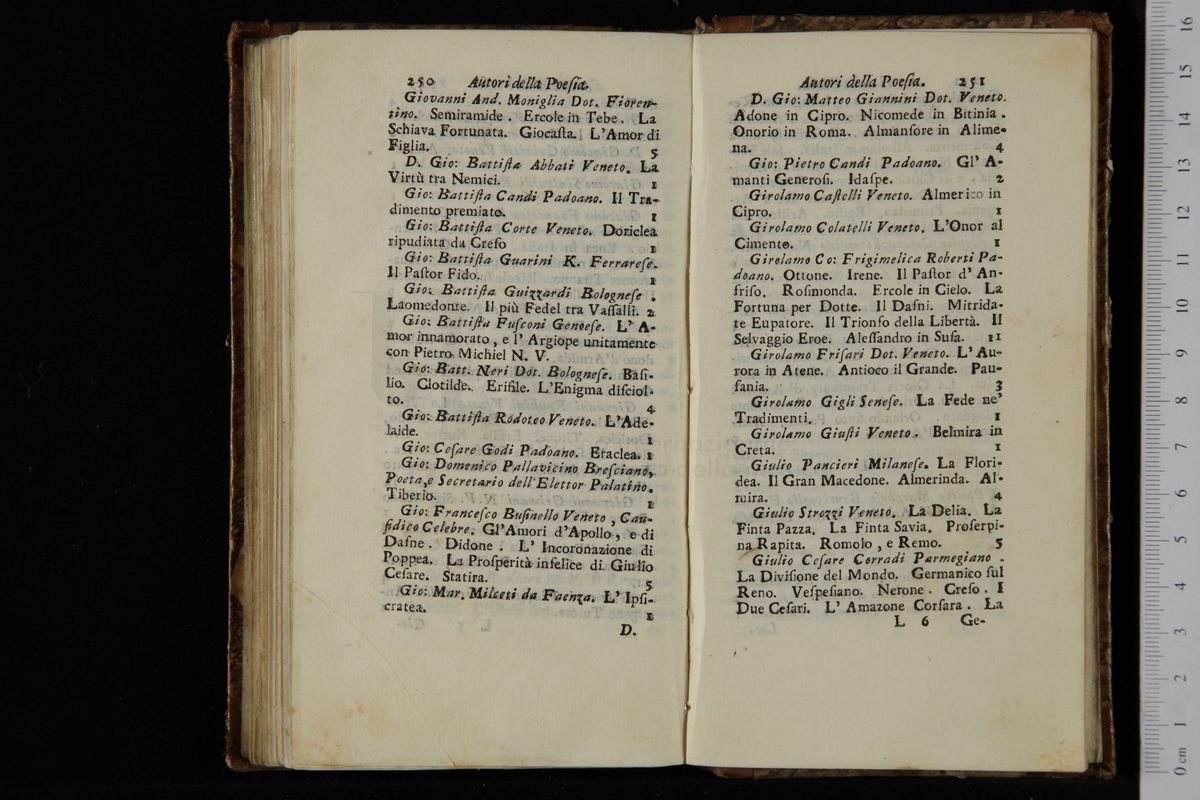 250 Autori della Poeſia.
Giovanni And. Moniglia Dot. Fioren-
tino. Semiramide . Ercole in Tebe . La
Schiava Fortunata. Giocaſta. L'Amor di
Figlia. 5
D. Gio: Battiſta Abbati Veneto. La
Virtù tra Nemici. 1
Gio: Battiſta Candi Padoano. Il Tra-
dimento premiato. 1
Gio: Battiſta Corte Veneto. Doriclea
ripudiata da Creſo 1
Gio: Battiſta Guarini K. Ferrareſe.
Il Paſtor Fido. 1
Gio: Battiſta Guizzardi Bologneſe .
Laomedonte. Il più Fedel tra Vaſſalli. 2
Gio: Battiſta Fuſconi Genoeſe. L' A-
mor innamorato , e l' Argiope unitamente
con Pietro Michiel N. V.
Gio: Batt. Neri Dot. Bologneſe. Baſi-
lio. Clotilde. Erifile. L'Enigma diſciol-
to. 4
Gio: Battiſta Rodoteo Veneto. L'Ade-
laide. 1
Gio: Ceſare Godi Padoano. Eraclea. 1
Gio: Domenico Pallavicino Breſciano,
Poeta,e Secretario dell'Elettor Palatino.
Tiberio. 1
Gio: Franceſco Buſinello Veneto , Cau-
ſidico Celebre. Gl'Amori d'Apollo, e di
Dafne . Didone . L' Incoronazione di
Poppea. La Proſperità infelice di Giulio
Ceſare. Statira. 5
Gio: Mar. Milceti da Faenza. L' Ipſi-
cratea. 1
D.
Autori della Poeſia. 251
D. Gio: Matteo Giannini Dot. Veneto.
Adone in Cipro. Nicomede in Bitinia .
Onorio in Roma. Almanſore in Alime-
na. 4
Gio: Pietro Candi Padoano. Gl' A-
manti Generoſi. Idaſpe. 2
Girolamo Caſtelli Veneto. Almerico in
Cipro. 1
Girolamo Colatelli Veneto. L'Onor al
Cimento. 1
Girolamo Co: Frigimelica Roberti Pa-
doano. Ottone. Irene. Il Paſtor d' An-
friſo. Roſimonda. Ercole in Cielo. La
Fortuna per Dotte. Il Dafni. Mitrida-
te Eupatore. Il Trionfo della Libertà. Il
Selvaggio Eroe. Aleſſandro in Suſa. 11
Girolamo Friſari Dot. Veneto. L' Au-
rora in Atene. Antioco il Grande. Pau-
ſania. 3
Girolamo Gigli Seneſe. La Fede ne'
Tradimenti. 1
Girolamo Giuſti Veneto . Belmira in
Creta. 1
Giulio Pancieri Milaneſe. La Flori-
dea. Il Gran Macedone. Almerinda. Al-
mira. 4
Giulio Strozzi Veneto. La Delia. La
Finta Pazza. La Finta Savia. Proſerpi-
na Rapita. Romolo , e Remo. 5
Giulio Ceſare Corradi Parmegiano .
La Diviſione del Mondo. Germanico ſul
Reno. Veſpeſiano. Nerone . Creſo . I
Due Ceſari. L' Amazone Corſara . La
L 6 Ge-
0 cm 1 2 3 4 5 6 7 8 9 10 11 12 13 14 15 16